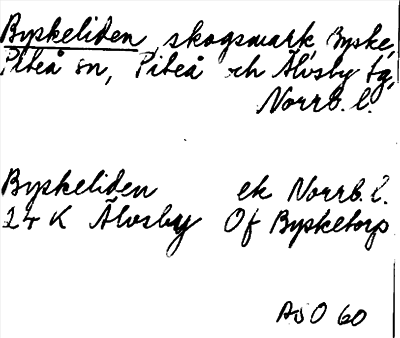 Byskeliden, skogsmark, Byske,
Piteå sn, Piteå och Älvsby tg,
Norrb. l.
Byskeliden ek Norrb. l.
24 K Älvsby Of Bysketorp
AsO 60